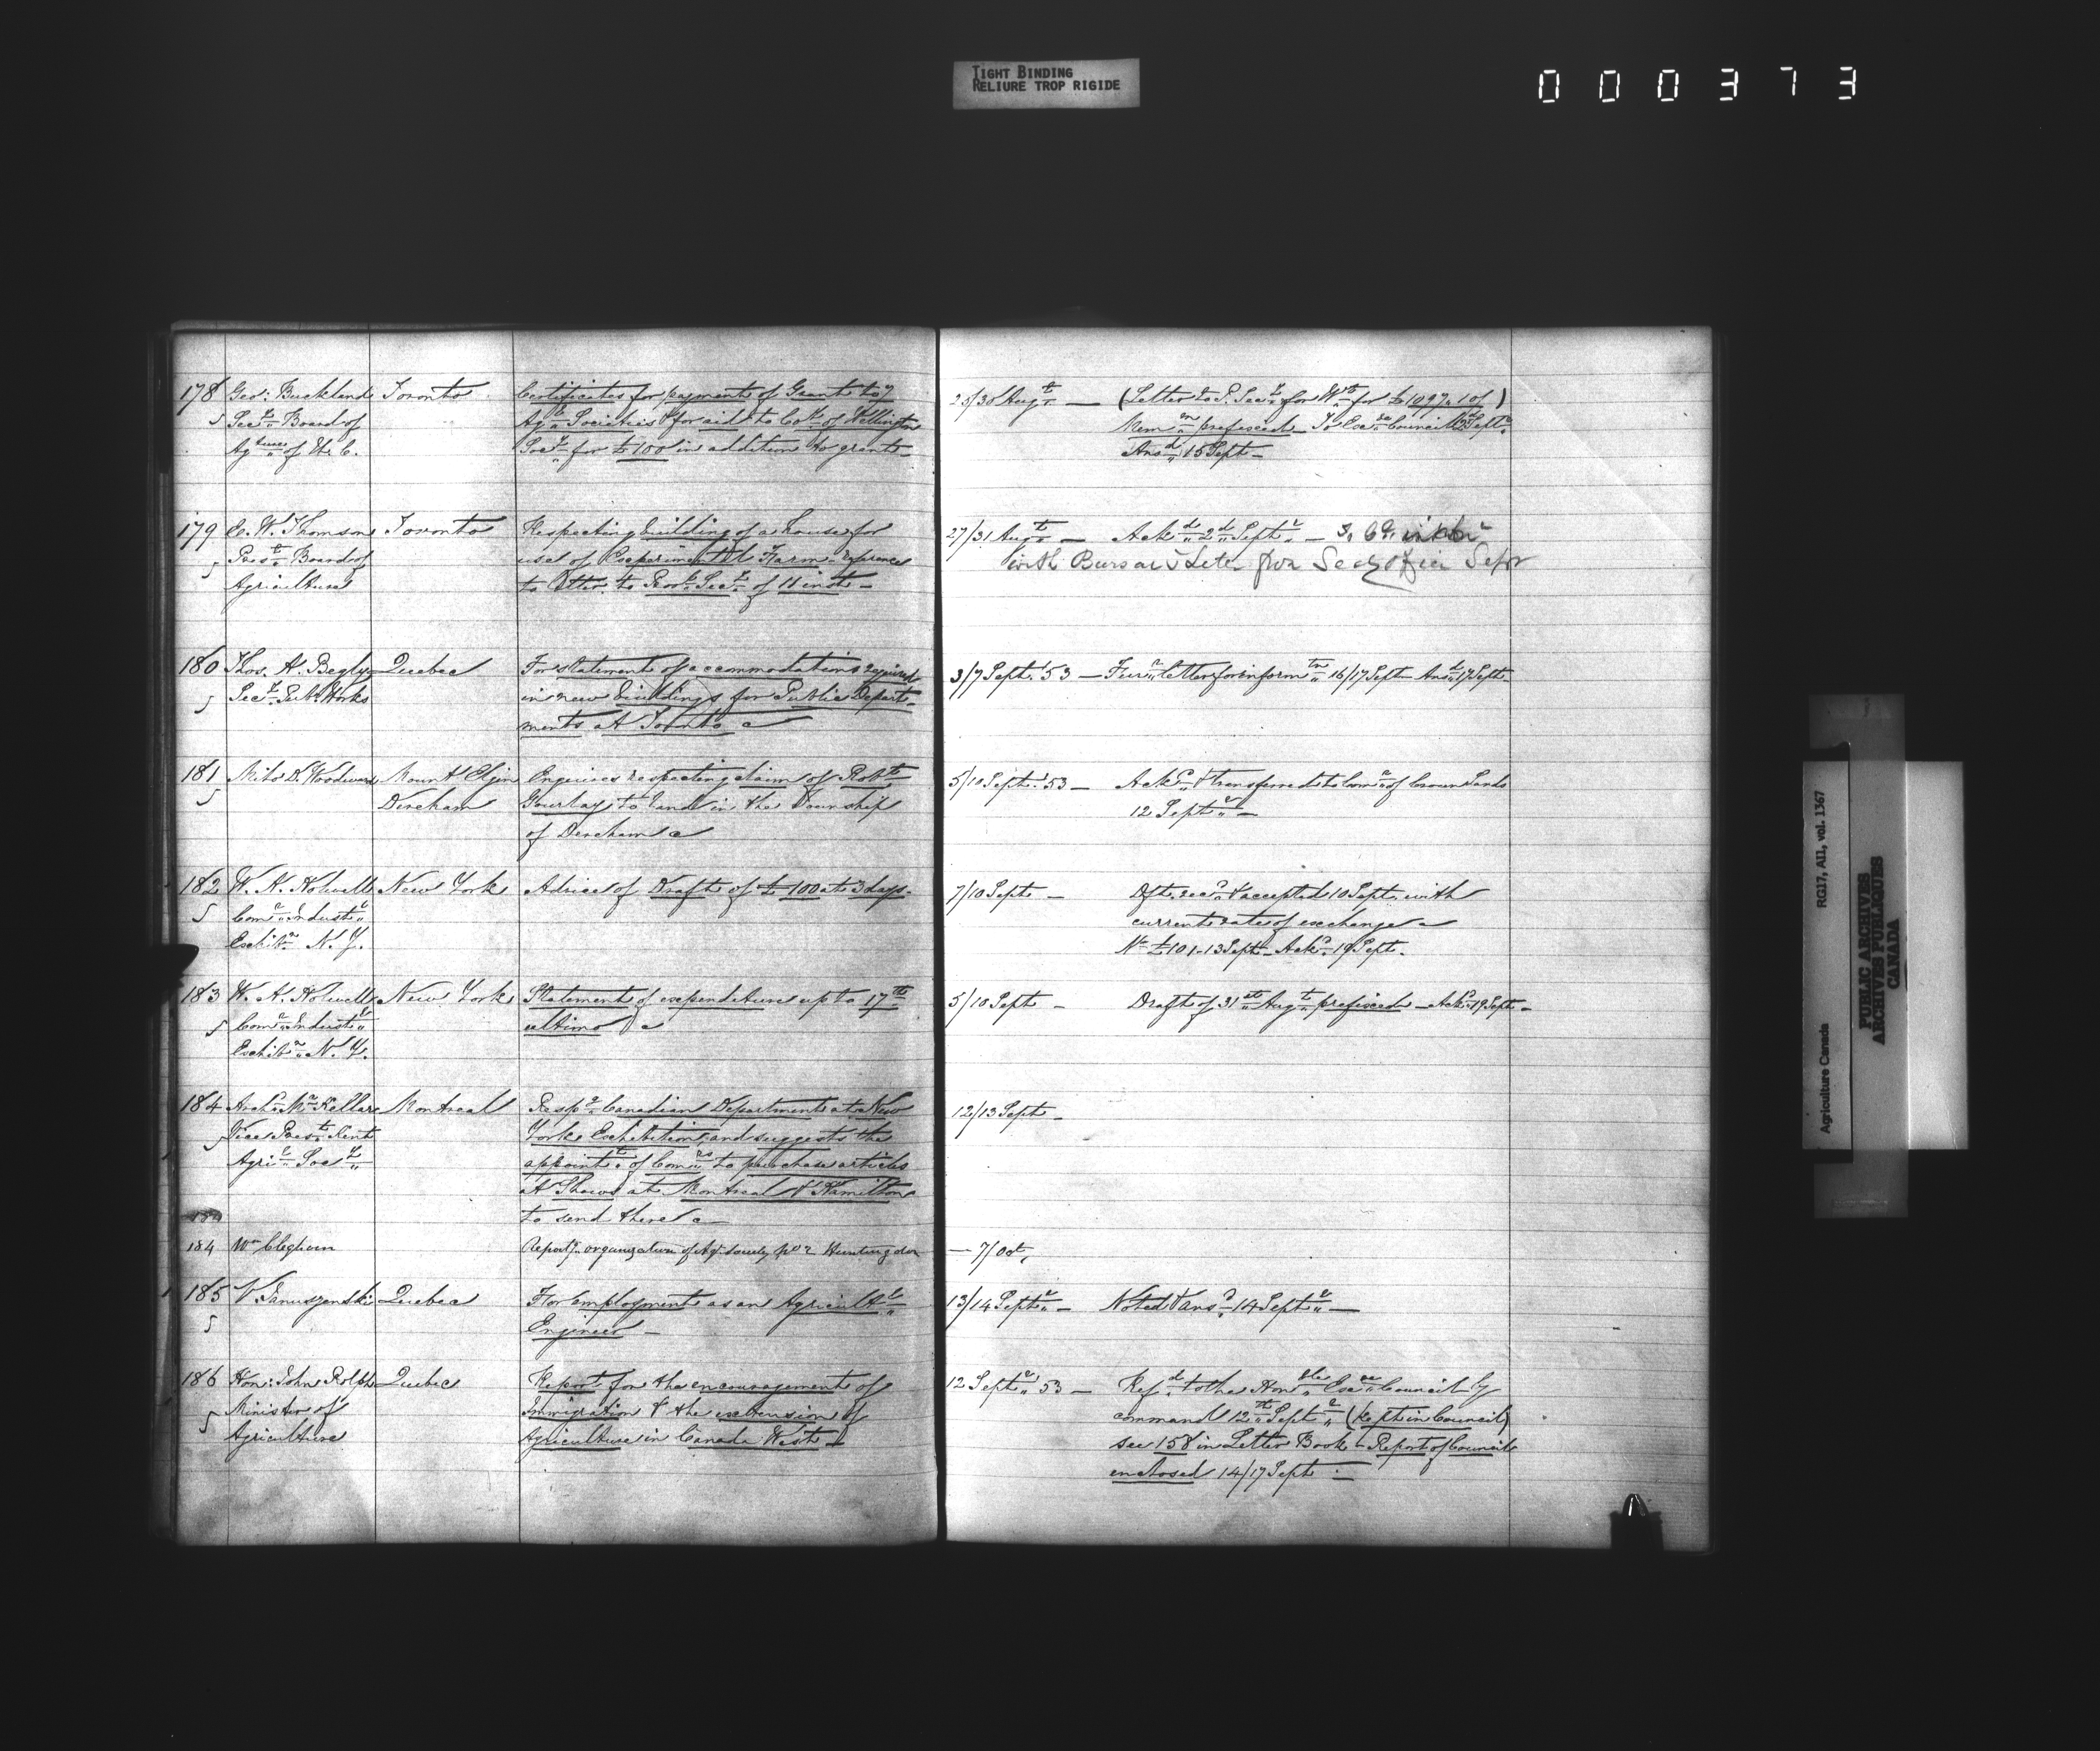 TIGHT BINDING
RELIURE TROP RIGIDE
000373
178 Geo: Buckland Toronto Certificates for payments of Grants to 7
5 Secy. Board of Agl. Societies & for aid to Co. of Wellington
Agture of U. C. Socy. for £100 in addition to grants
179 E. W. Thomson Toronto Respecting building of a house for
5 Prest. Board of use of Experimental Farm reference
Agriculture to to Provl. Secy. of 11 inst
180 Thos. A. Begly Quebec For statement of accommodation required
5 Secy. Pub. Works in new buildings for Public Depart-
ments at Toronto &c
181 Milo D. Woodward Mount Elgin Enquires respecting claim of Robt.
5 Dereham Gourlay to land in the Township
of Dereham &c
182 W. A. Holwell New York Advice of Draft of £100 at 3 days
5 Comr. Industl.
Exhibn. N. Y.
183 W. A. Holwell New York Statement of expenditure up to 17th
5 Comr. Industl. ultimo &c
Exhibn. N. Y.
184 Archd. McKellar Montreal Respg. Canadian Department at New
5 Vice Prest. Kent York Exhibition, and suggests the
Agril. Socy. appointt. of Comrs. to purchase articles
at Shows at Montreal & Hamilton
to send there &c
184 Wm Cleghorn Report organization of Agl. Society No 2 Huntingdon
185 V. Januszenski Quebec For employment as an Agricultl.
5 Engineer
186 Hon: John Rolph Quebec Report for the encouragement of
5 Minister of Immigration & the extension of
Agriculture Agriculture in Canada West
/30 Augt. — (Letter to P. Secy. for Wt. for £1097.10/)
Memn. prefixed To Exe. Council Septr.
Ansd. 15 Sept
27/31 Augt. — Ackd. 2d Septr. —
with Bursar's Letter Secy Office Sepr
3/7 Sept. 53 — Furr. letter for informtn. 16/17 Sept Ansd. 17 Sept.
5/10 Sept. 53 — Ackd. & transferred to Comr. of Crown Lands
12 Septr. —
7/10 Sept — Dft. recd. & accepted 10 Sept. with
current rates of exchange
£101- 13 Sept Ackd. 19 Sept.
5/10 Sept — Draft of 31st Augt. prefixed — Ackd. 19 Sept —
12/13 Sept —
— 7/Oct,
13/14 Septr. — Noted & ansd. 14 Septr. —
12 Septr. 53 — Refd. to the Honble. Exe. Council by
command 12th Septr. (kept in Council)
see 158 in Letter Book — Report of Council
enclosed 14/17 Sept —
Agriculture Canada RG17, A11, vol. 1367
PUBLIC ARCHIVES
ARCHIVES PUBLIQUES
CANADA